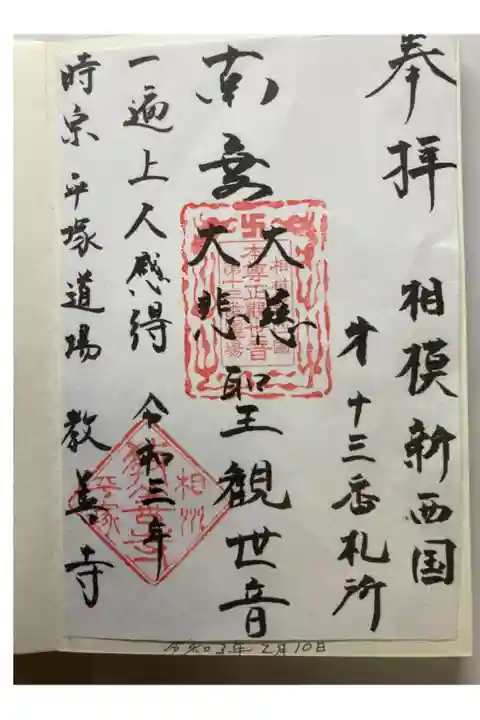 奉拝
相模新西国
才十三番札所
南無大慈大悲聖観世音
一遍上人感得 令和三年
時宗平塚道場 教善寺
本尊正観世音
相州
平塚
令和3年2月10日